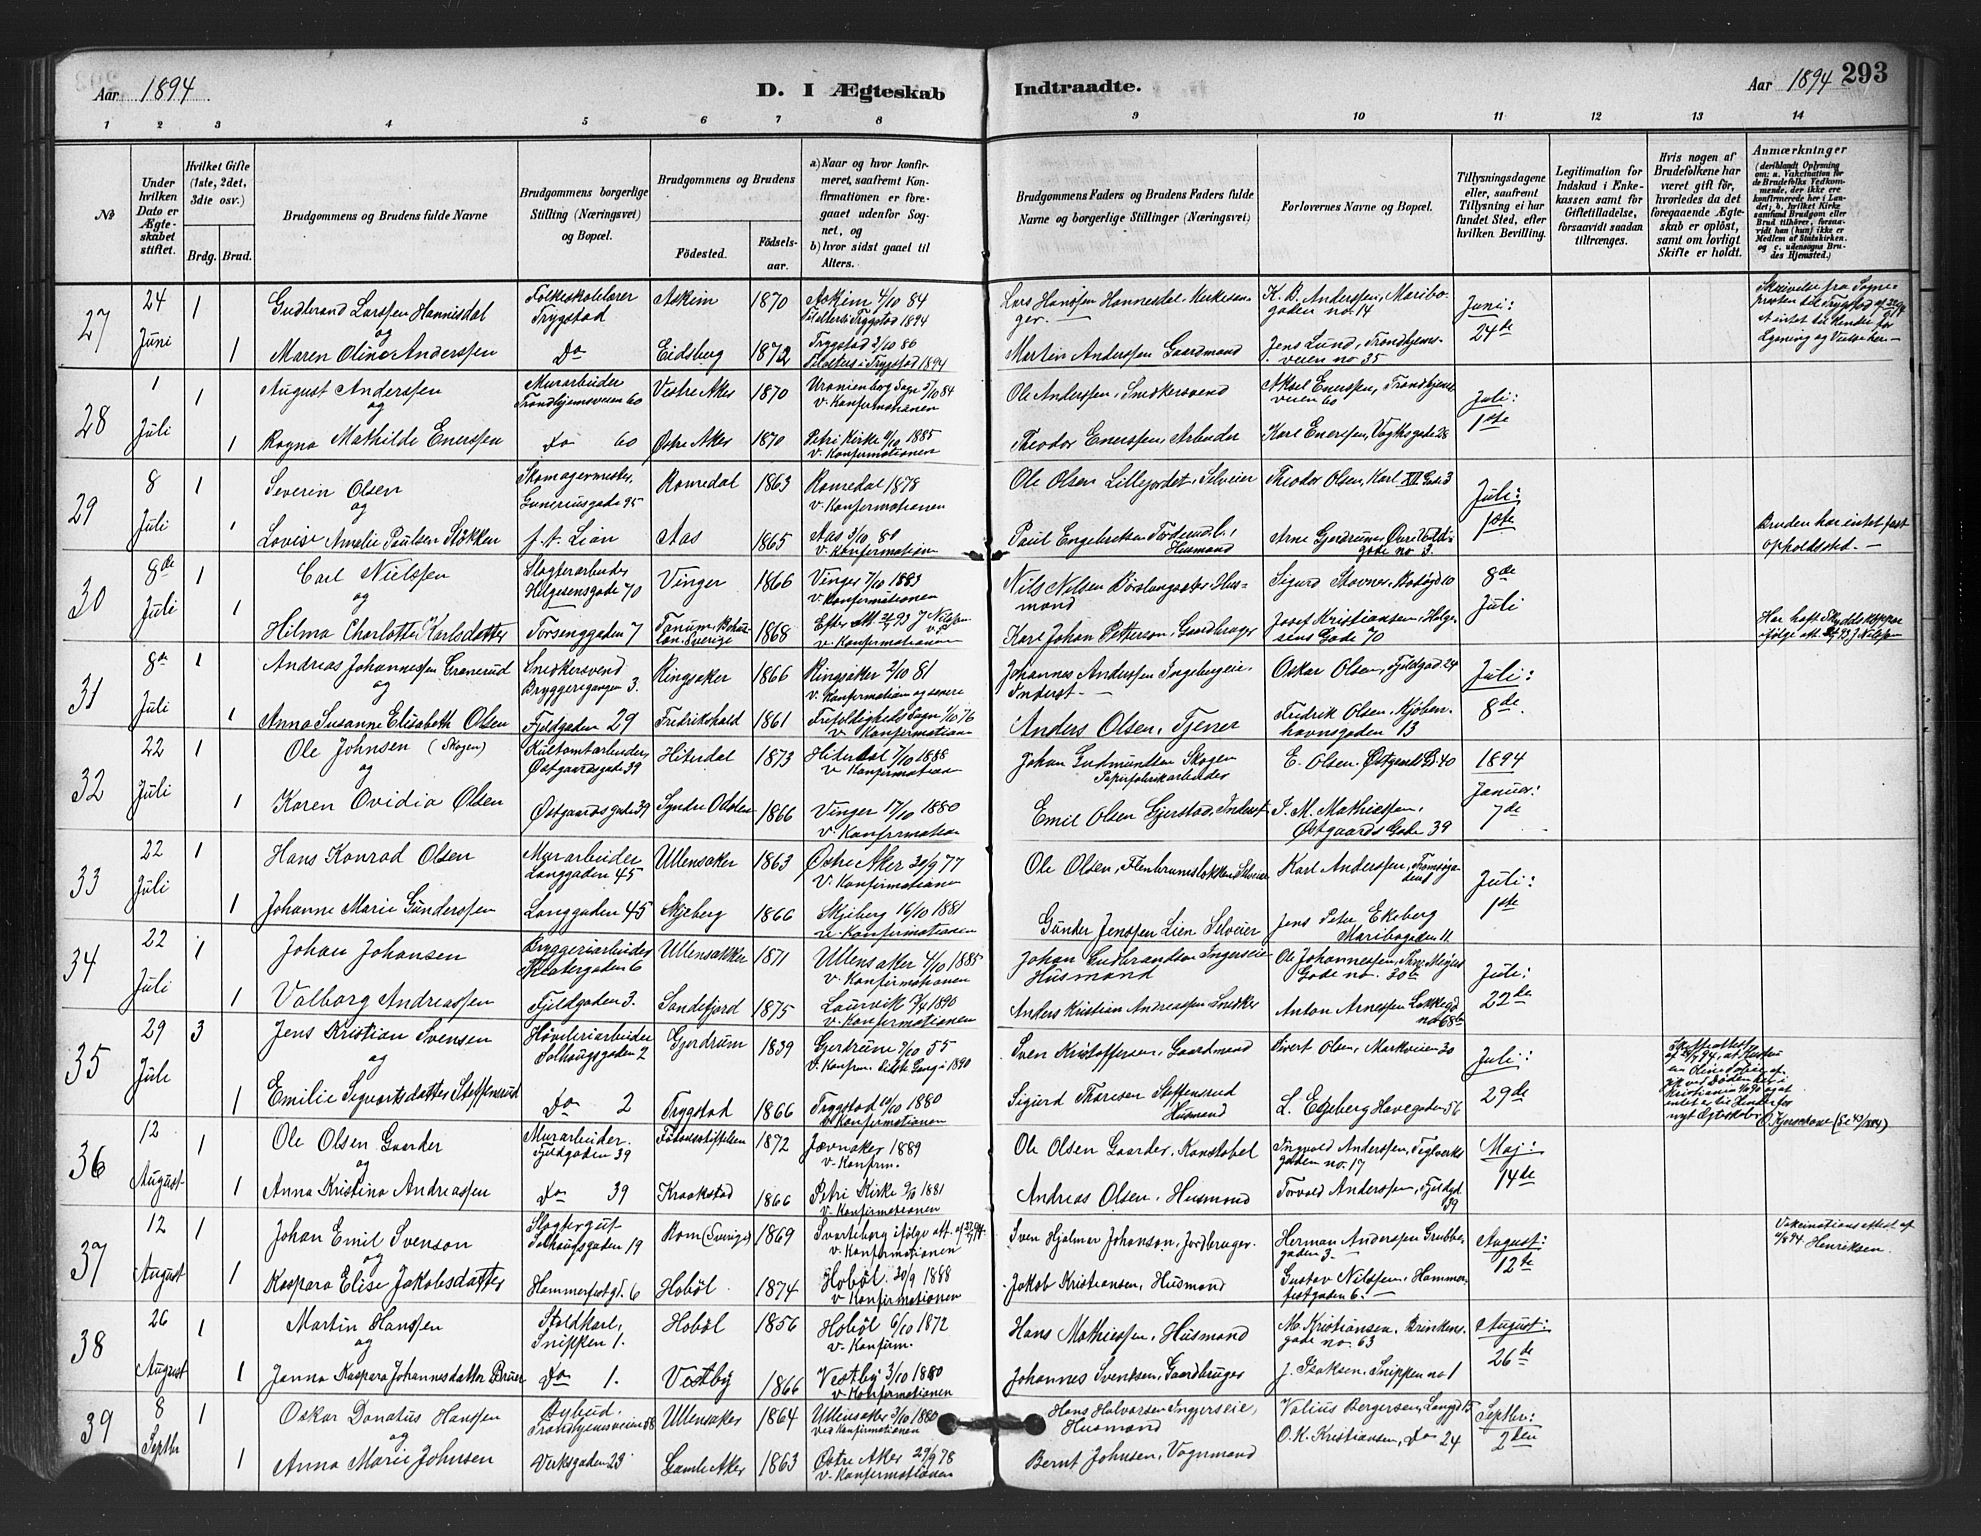 Aar 1894
D. I Ægteskab
Indtraadte.
Aar 1894
293
1 2 3 4 5 6 7 8 9 10 11 12 13 14
No
Under hvilken Dato er Ægteskabet stiftet.
Hvilket Gifte (1ste, 2det, 3die osv.)
Brdg. Brud.
Brudgommens og Brudens fulde Navne
Brudgommens borgerlige Stilling (Næringsvei) og Bopæl.
Brudgommens og Brudens
Fødested.
Fødselsaar.
a) Naar og hvor konfirmeret, saafremt Konfirmationen er foregaaet udenfor Sognet, og
b) hvor sidst gaaet til Alters.
Brudgommens Faders og Brudens Faders fulde Navne og borgerlige Stillinger (Næringsvei)
Forlovernes Navne og Bopæl.
Tillysningsdagene eller, saafremt Tillysning ei har fundet Sted, efter hvilken Bevilling.
Legitimation for Indskud i Enkekassen samt for Giftetilladelse, forsaavidt saadan tiltrænges.
Hvis nogen af Brudefolkene har været gift før, hvorledes da det foregaaende Ægteskab er opløst, samt om lovligt Skifte er holdt.
Anmærkninger
(deriblandt Oplysning om: a. Vakcination for de Brudefolks Vedkommende, der ikke ere konfirmerede her i Landet; b. hvilket Kirkesamfund Brudgom eller Brud tilhører, forsaavidt han (hun) ikke er Medlem af Statskirken, og c. udensogns Brudes Hjemsted.)
27 24 Juni 1 Gudbrand Larssen Hannisdal Folkeskolelærer Trygstad Askim 1870 Askim 4/10 84 Trygstad 1894
og
1 Maren Oline Anderssen Do Eidsberg 1872 Trygstad 3/10 86 Trygstad 1894
Lars Hanssen Hannesdal
K. B. Anderssen, Maribogaden no. 14
Juni: 24de
Martin Anderssen Gaardmand
Jens Lund, Trondhjemsveien no 35
28 1 Juli 1 August Anderssen Murarbeider Trondhjemsveien 60 Vestre Aker 1870 Uranienborg Sogn 5/10 84 v. Konfirmationen
og
1 Ragna Mathilde Enerssen Do 60 Østre Aker 1870 Petri Kirke 4/10 1885 v. Konfirmationen
Ole Anderssen, Snedkersvend
Aksel Enerssen, Trondhjemsveien 60
Juli: 1ste
Theodor Enerssen, Arbeider
Karl Enerssen, Vogtsgade 28
29 8 Juli 1 Severin Olsen Skomagermester, Gunerusgade 95 Romedal 1863 Romedal 1878 v. Konfirmationen
og
1 Lovise Amelie Paulsen Stokken f. t. Lian Aas 1865 Aas 3/10 80 v. Konfirmation
Ole Olsen Lillejordet, Selveier
Theodor Olsen, Karl XII Gade 3
Juli: 1ste
Paul Engebretsen Husmand
Arne Gjerdrum, Øvre gade no 3.
Bruden har intet fast opholdssted.
30 8de Juli 1 Carl Nielssen Slagterarbeider Helgesensgade 70 Vinger 1866 Vinger 7/10 1883 v. Konfirmationen
og
1 Hilma Charlotte Karlsdatter Torsenggaden 7 Tanum, Bohuslan, Sverige 1868 v. Konfirmationen
Nils Nilsen Husmand
Sigurd Stovner, Bodøgd 10
8de Juli
Karl Johan Petterson, Gaardbruger
Josef Kristiansen, Helgesens Gade 70
Har haft Skyddskoppor ifølge att. J. Nilssen
31 8de Juli 1 Andreas Johannessen Granerud Snedkersvend Bryggerigangen 3. Ringsaker 1866 Ringsaker 2/10 81 v. Konfirmation og senere
og
1 Anna Susanne Elisabeth Olsen Fjeldgaden 29 Fredrikshald 1861 Trefoldigheds Sogn 1/10 76 v. Konfirmation
Johannes Anderssen Ingebergeie, Inderst.
Oskar Olsen, Fjeldgad 24
Juli: 8de
Anders Olsen, Tjener
Fredrik Olsen, Kjøbenhavnsgaden 13
32 22 Juli 1 Ole Johnsen (Skogen) Kultomtarbeider, Østgaardsgade 39 Hiterdal 1873 Hiterdal 7/10 1888 v. Konfirmationen
og
1 Karen Ovidia Olsen Østgaardsgade 39 Søndre Odalen 1866 Vinger 17/10 1880 v. Konfirmation
Johan Gudmundsen Skogen Papirfabrikarbeider
E. Olsen, Østgaards Gd 40
1894 Januar: 7de
Emil Olsen Gjerstad, Inderst
P. M. Mathiessen, Østgaards Gade 39
33 22 Juli 1 Hans Konrad Olsen Murarbeider Langgaden 45 Ullensaker 1863 Østre Aker 30/9 77 v. Konfirmationen
1 Johanne Marie Gunderssen Langgaden 45 Skjeberg 1866 Skjeberg 16/10 1881 v. Konfirmationen
Ole Olsen, Selveier
Karl Andressen, Tromsøgaden 1
Juli: 1ste
Gunder Jenssen Lien Selveier
Jens Peter Ekeberg Maribogaden 11.
34 22 Juli 1 Johan Johansen Bryggeriarbeider Theatergaden 6 Ullensaker 1871 Ullensaker 4/10 1885 v. Konfirmationen
1 Valborg Andreassen Fjeldgaden 3. Sandefjord 1875 Laurvik 7/4 1890 v. Konfirmationen
Johan Gudbrandsen Ingerseie Husmand
Ole Johannessen, Thv. Meyers Gade no. 30b
Juli: 22de
Anders Kristian Andreassen Snedker
Anton Arnessen Løkkegd no 68b
35 29 Juli 3 Jens Kristian Svensen Høvleriarbeider Solhaugsgaden 2 Gjerdrum 1839 Gjerdrum 7/10 55 v. Konfirm. sidste Gang i 1890
og
1 Emilie Sigvartsdatter Steffensrud Do 2 Trygstad 1866 Trygstad 10/10 1880 v. Konfirmationen
Sven Kristoffersen, Gaardmand
Sivert Olsen, Markveien 30
Juli: 29de
Sigurd Thoresen Steffensrud Husmand
L. Ekeberg Havegaden 56
Skifteattest af 24/7 94, at Hustruen Oline Tobie afgik ved Døden her i Kristiania og at intet er til Hinder for nyt Ægteskab.
36 12 August 1 Ole Olsen Gaarder Murarbeider, Fjeldgaden 39 Fødselsstiftelsen 1872 Jævnaker 1889 v. Konfirm.
og
1 Anna Kristina Andreassen Do 39 Kraakstad 1866 Petri Kirke 9/10 1881 v. Konfirmationen
Ole Olsen Gaarder, Konstabel
Ingvald Anderssen, Teglverksgaden no. 17
Maj: 14de
Andreas Olsen, Husmand
Torvald Anderssen, Fjeldgd 39
37 12 August 1 Johan Emil Svenson Slagtergut Solhaugsgaden 19 Rom (Sverige) 1869 Svarteborg ifølge att. v. Konfirmationen
og
1 Kaspara Elise Jakobsdatter Hammerfestgd. 6 Hobøl 1874 Hobøl 30/9 1888 v. Konfirmationen
Sven Hjalmer Johanson, Jordbruger.
Herman Anderssen Grubbegaden 3.
August: 12te
Jakob Kristiansen, Husmand
Gustav Nilssen, Hammerfestgaden 6.
Vakcinationsattest af 4/8 94 Henriksen.
38 26 August 1 Martin Hanssen Staldkarl, Snippen 1. Hobøl 1856 Hobøl 6/10 1872 v. Konfirm.
og
1 Janna Kaspara Johannesdatter Bruer Do 1. Vestby 1866 Vestby 3/10 1880 v. Konfirmationen
Hans Mathiessen, Husmand
M. Kristiansen, Brinkensgade no. 63
August: 26de
Johannes Svenksen, Gaardbruger
J. Isaksen, Snippen no 1
39 8 Septbr 1 Oskar Donatus Hanssen Bybud, Trondhjemsveien 58 Ullensaker 1864 Ullensaker 3/10 1880 ved Konfirmationen
og
1 Anna Marie Johnsen Verksgaden 23 Gamle Aker 1863 Østre Aker 29/9 78 v. Konfirmationen
Hans Halvorsen Inggerseie, Husmand
Valius Bergersen, Langgd 15
Septbr: 2den
Bernt Johnsen, Vognmand
O. K. Kristiansen, Do 24